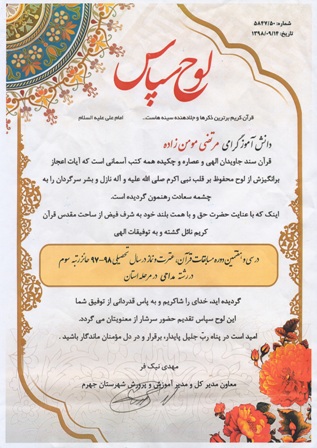 شماره: ۵۸۴۷/۵۰
تاریخ: ۱۳۹۸/۰۹/۱۴
لوح سپاس
قرآن کریم برترین ذکرها و جلادهنده سینه هاست.. امام علی علیه السلام
دانش آموز گرامی مرتضی مومن زاده
قرآن سند جاویدان الهی و عصاره و چکیده همه کتب آسمانی است که آیات اعجاز
برانگیزش از لوح محفوظ بر قلب نبی اکرم صلی الله علیه و آله نازل و بشر سرگردان را به
چشمه سعادت رهنمون گردیده است.
اینک که با عنایت حضرت حق و با همت بلند خود به شرف فیض از ساحت مقدس قرآن
کریم نائل گشته و به توفیقات الهی
در سی و هشتمین دوره مسابقات قرآن، عترت و نماز در سال تحصیلی ۹۸-۹۷ حائز رتبه سوم
در رشته مداحی در مرحله استان
گردیده اید، خدای را شاکریم و به پاس قدردانی از توفیق شما
این لوح سپاس تقدیم حضور سرشار از معنویتان می گردد.
امید است در پناه ربّ جلیل پایدار، برقرار و در دل مؤمنان ماندگار باشید .
مهدی نیک فر
معاون مدیر کل و مدیر آموزش و پرورش شهرستان جهرم